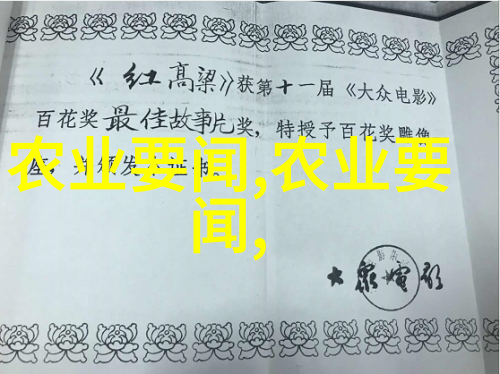 《红高粱》获第十一届《大众电影》
百花奖最佳故事片奖，特授予百花奖雕像
座，并颁发
农业要闻,农业要
闻,
大众电影